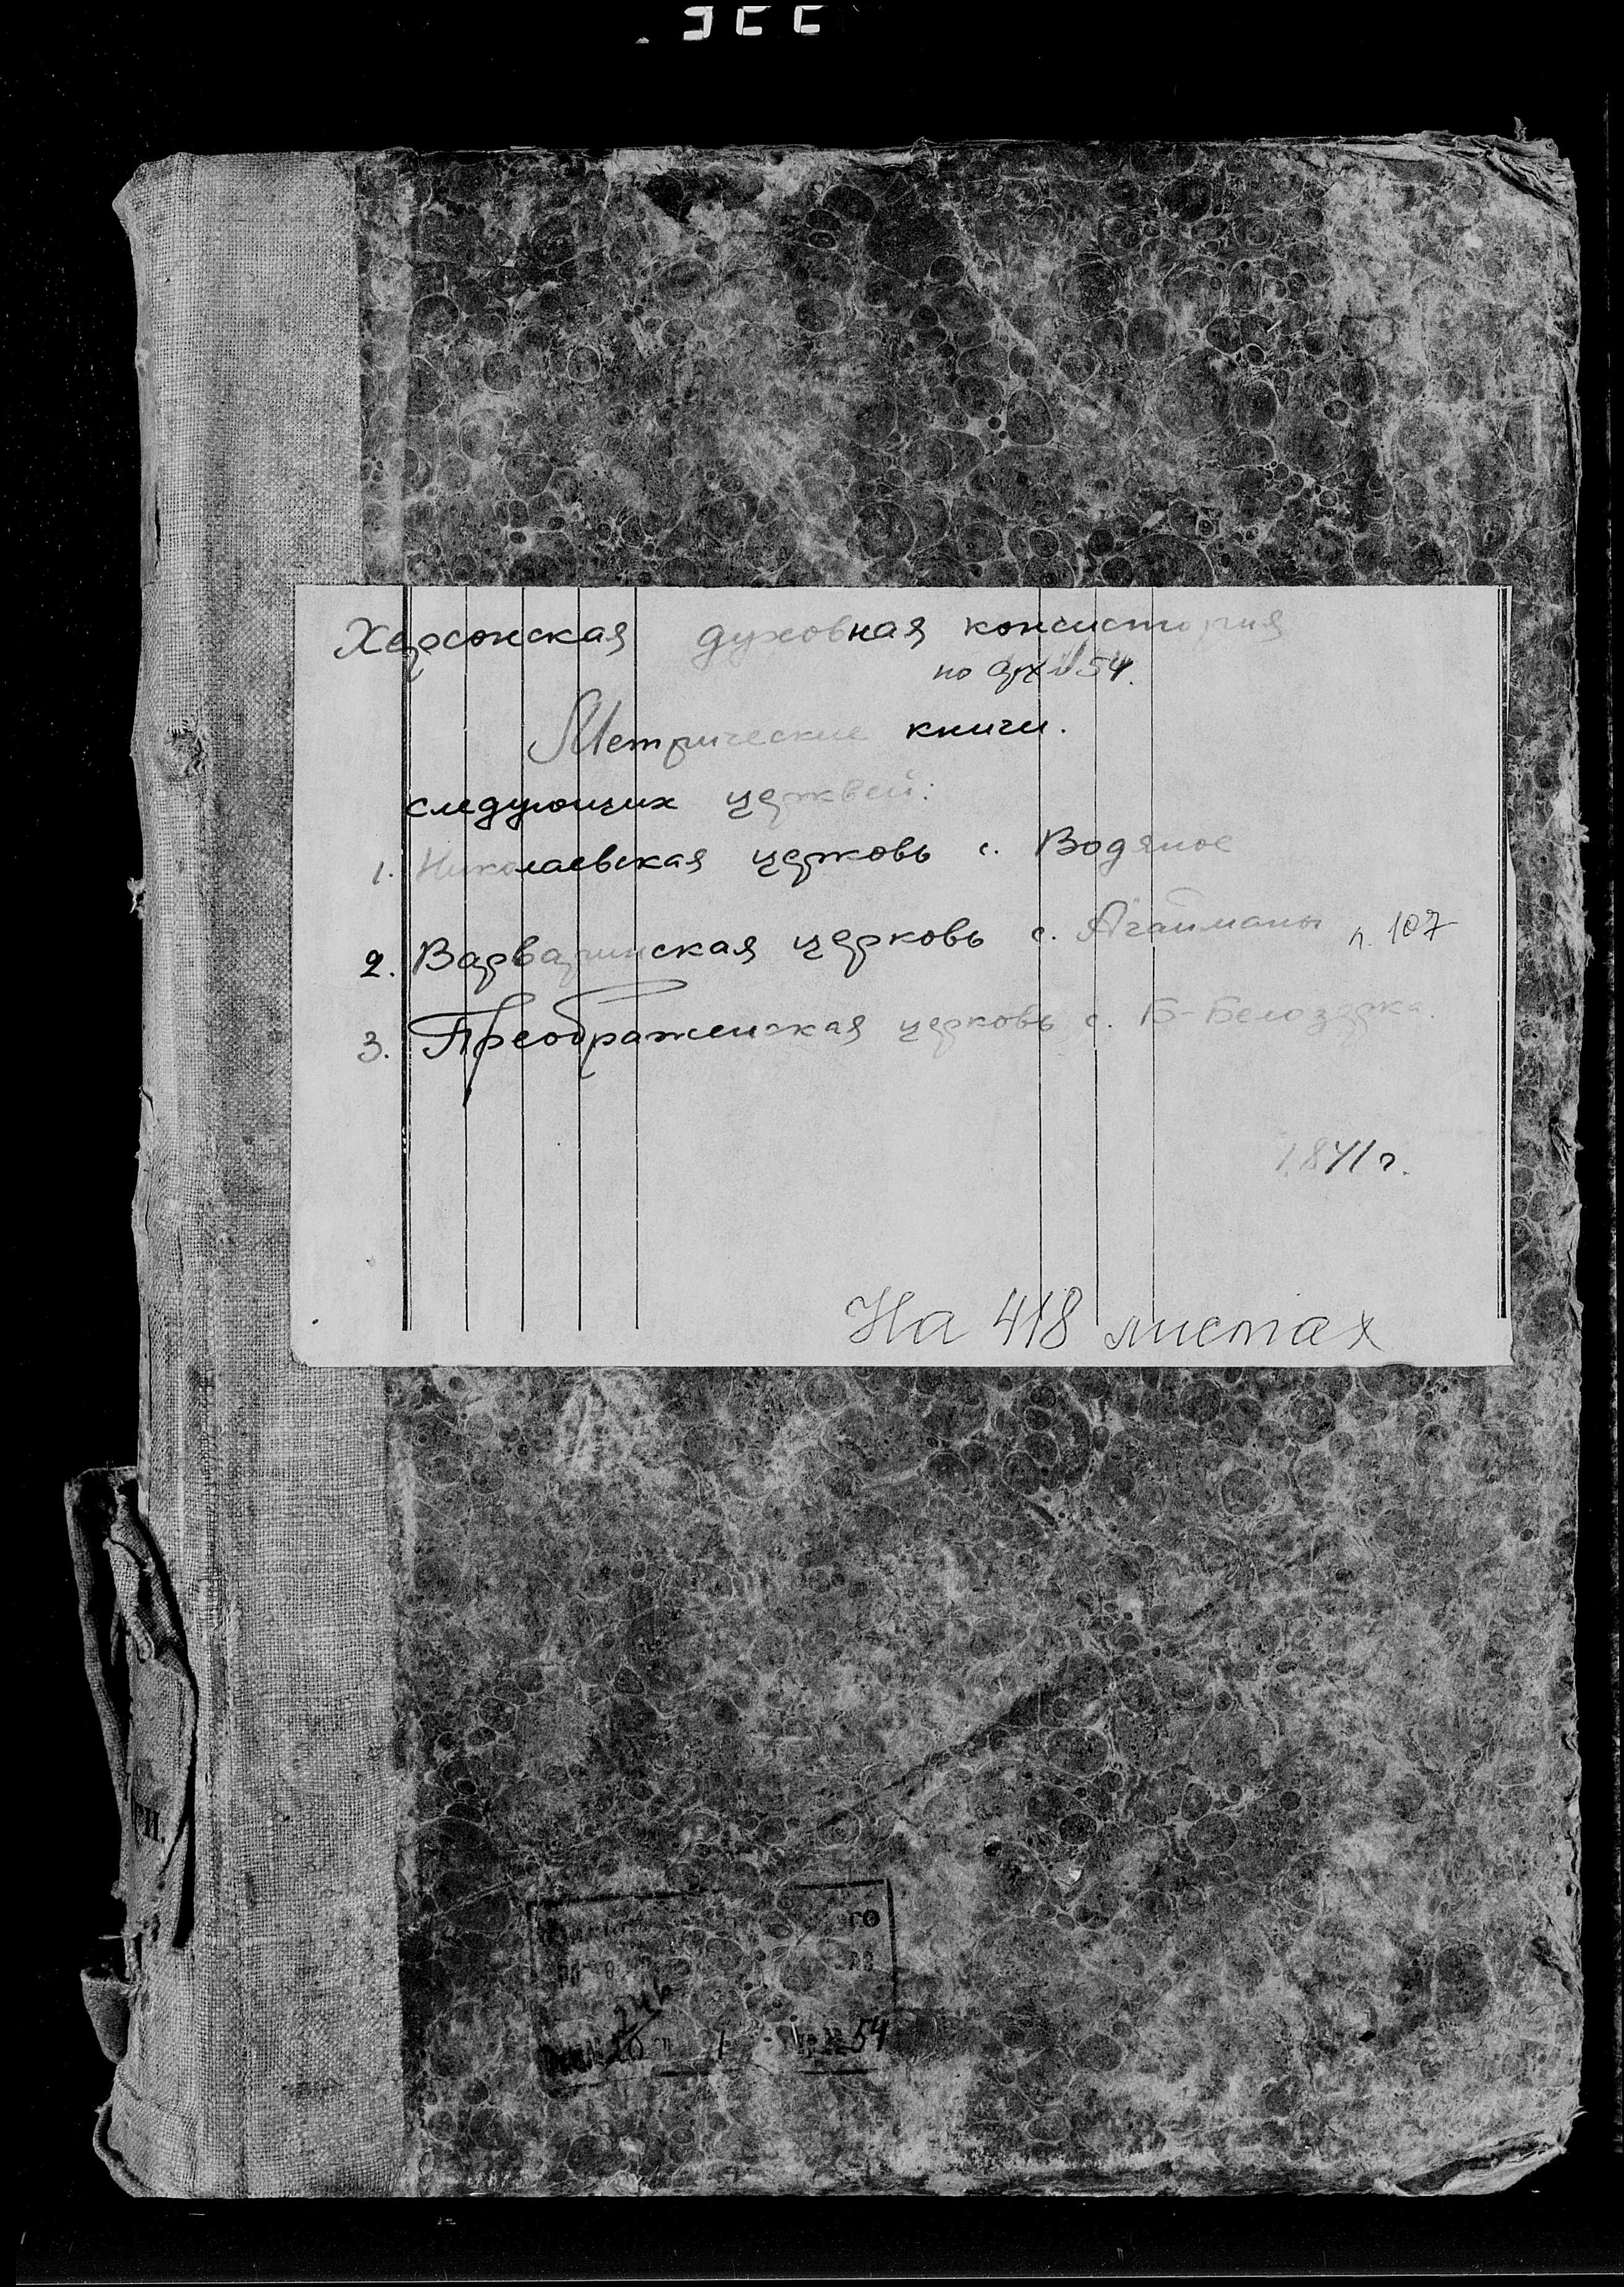 Херсонская духовная консистория
по арх № 54.
Метрические книги.
следующих церквей:
1. Николаевская церковь с. Водяное
2. Варваринская церковь с. Агайманы л. 107
3. Преображенская церковь с. Б-Белозерка.
1841 г.
На 418 листах
го
1 54